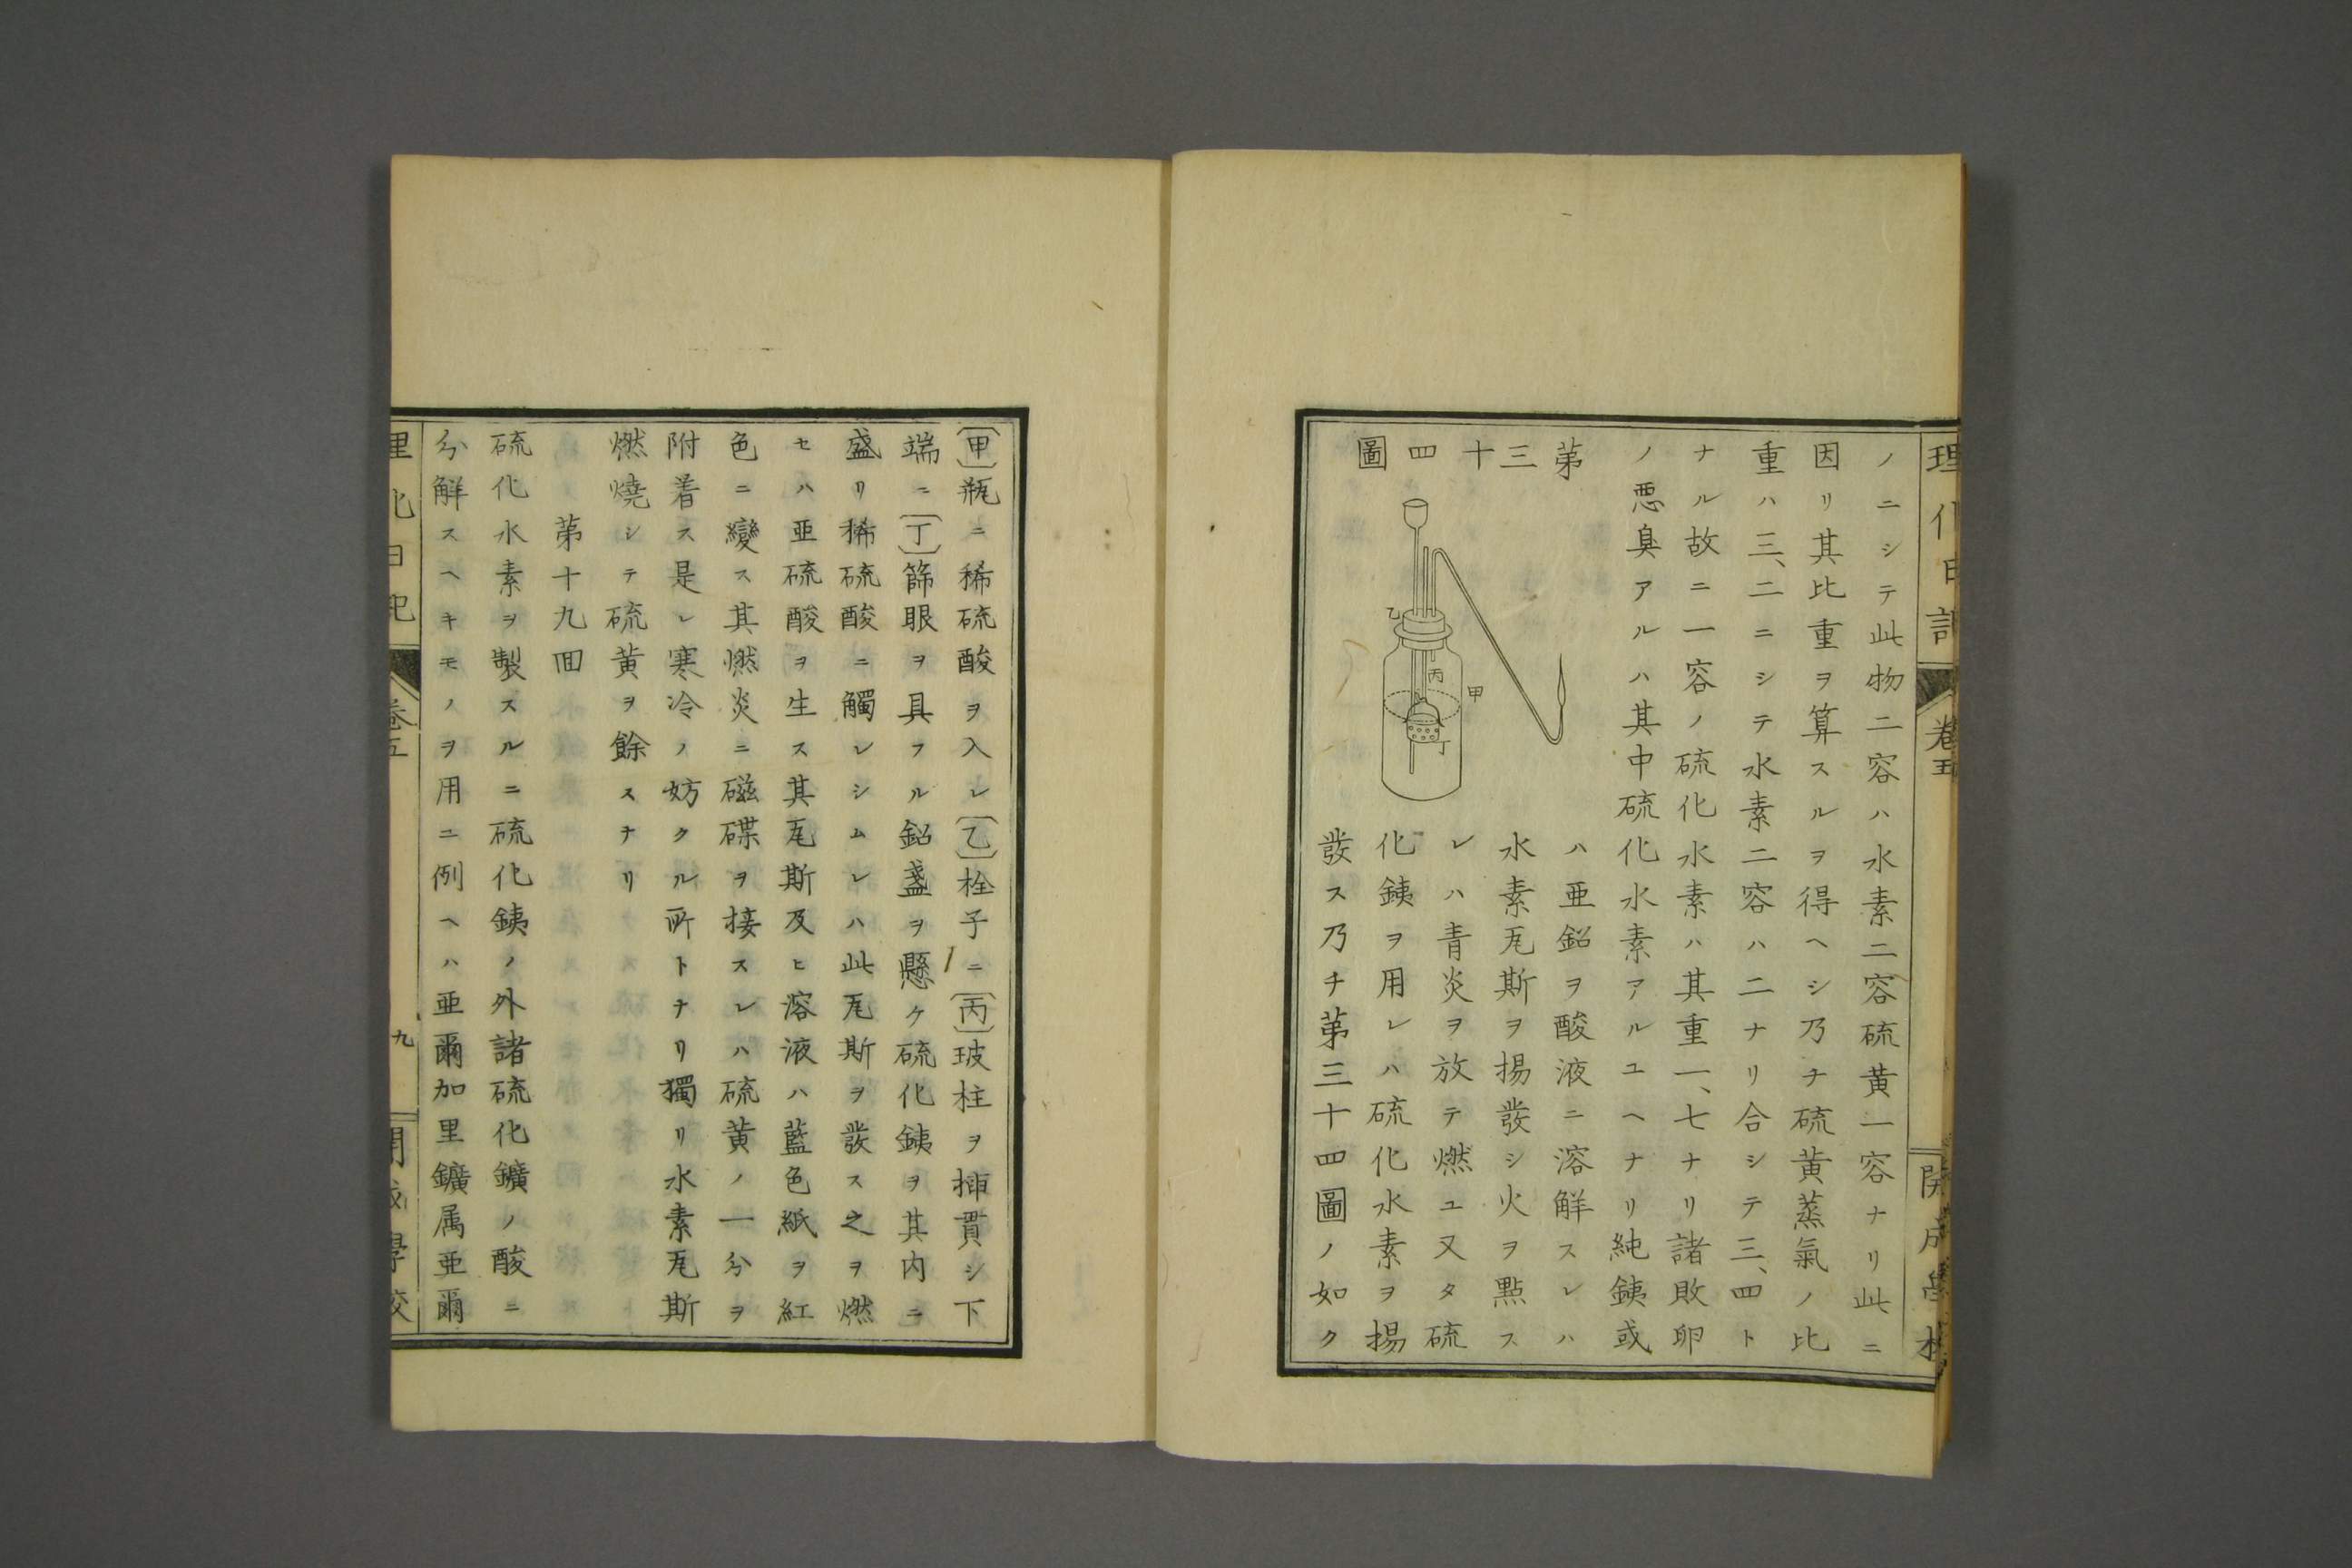 理化日記
卷五
開成學校
ノニシテ此物二容ハ水素二容硫黄一容ナリ此ニ
因リ其比重ヲ算スルヲ得ヘシ乃チ硫黄蒸氣ノ比
重ハ三、二ニシテ水素二容ハ二ナリ合シテ三、四ト
ナル故ニ一容ノ硫化水素ハ其重一、七ナリ諸敗卵
ノ悪臭アルハ其中硫化水素アルユヘナリ純銕或
第三十四圖
乙
丙
甲
丁
ハ亜鉛ヲ酸液ニ溶解スレハ
水素瓦斯ヲ揚發シ火ヲ點ス
レハ青炎ヲ放テ燃ユ又タ硫
化銕ヲ用レハ硫化水素ヲ揚
發ス乃チ第三十四圖ノ如ク
〔甲〕瓶ニ稀硫酸ヲ入レ〔乙〕栓子ニ〔丙〕玻柱ヲ挿貫シ下
端ニ〔丁〕篩眼ヲ具フル鉛盞ヲ懸ケ硫化銕ヲ其内ニ
盛リ稀硫酸ニ觸レシムレハ此瓦斯ヲ發ス之ヲ燃
セハ亜硫酸ヲ生ス其瓦斯及ヒ溶液ハ藍色紙ヲ紅
色ニ變ス其燃炎ニ磁碟ヲ接スレハ硫黄ノ一分ヲ
附着ス是レ寒冷ノ妨クル所トナリ獨リ水素瓦斯
燃燒シテ硫黄ヲ餘スナリ
第十九回
硫化水素ヲ製スルニ硫化銕ノ外諸硫化鑛ノ酸ニ
分解スヘキモノヲ用ニ例ヘハ亜爾加里鑛属亜爾
理化日記
卷五
九
開成學校